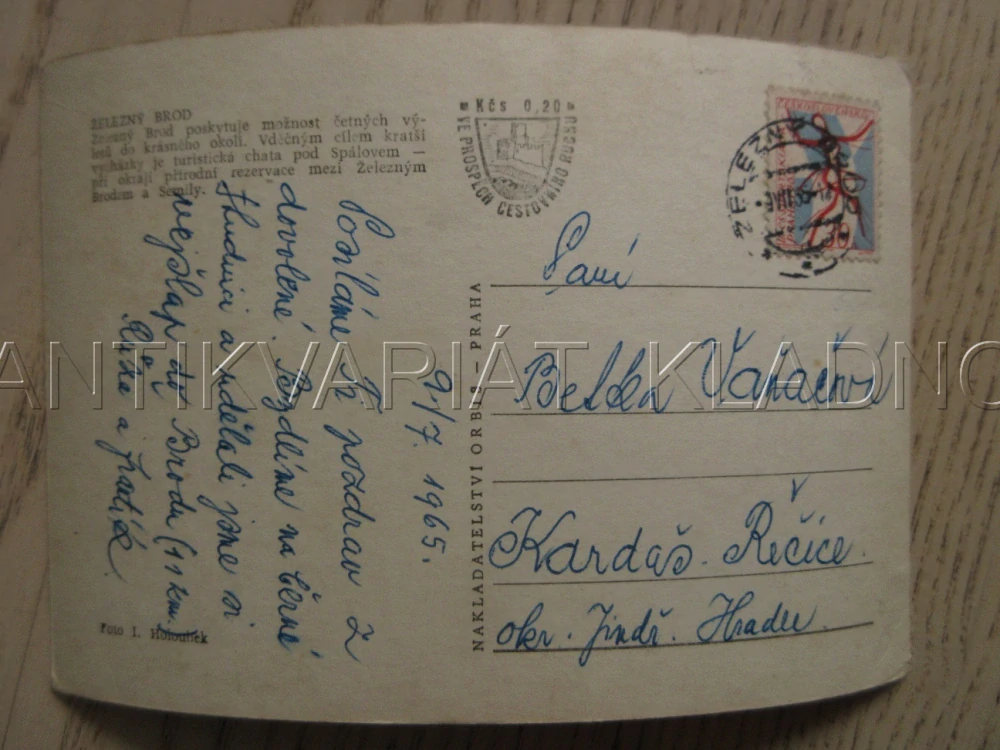 ŽELEZNÝ BROD
Železný Brod poskytuje možnost četných vý-
letů do krásného okolí. Vděčným cílem kratší
vycházky je turistická chata pod Spálovem —
při okraji přírodní rezervace mezi Železným
Brodem a Semily.
Kčs 0,20
VE PROSPĚCH CESTOVNÍHO RUCHU
ČESKOSLOVENSKO
ŽELEZNÝ BROD
9/7. 1965.
Posíláme Ti pozdrav z
dovolené. Bydlíme na Černé
Studnici a udělali jsme si
výšlap do Brodu (11 km.
Růža a Frantík.
Paní
Betka
Kardaš. Řečice.
okr. Jindř. Hradec.
NAKLADATELSTVÍ ORBIS – PRAHA
Foto I. Holoubek
ANTIKVARIÁT KLADNO